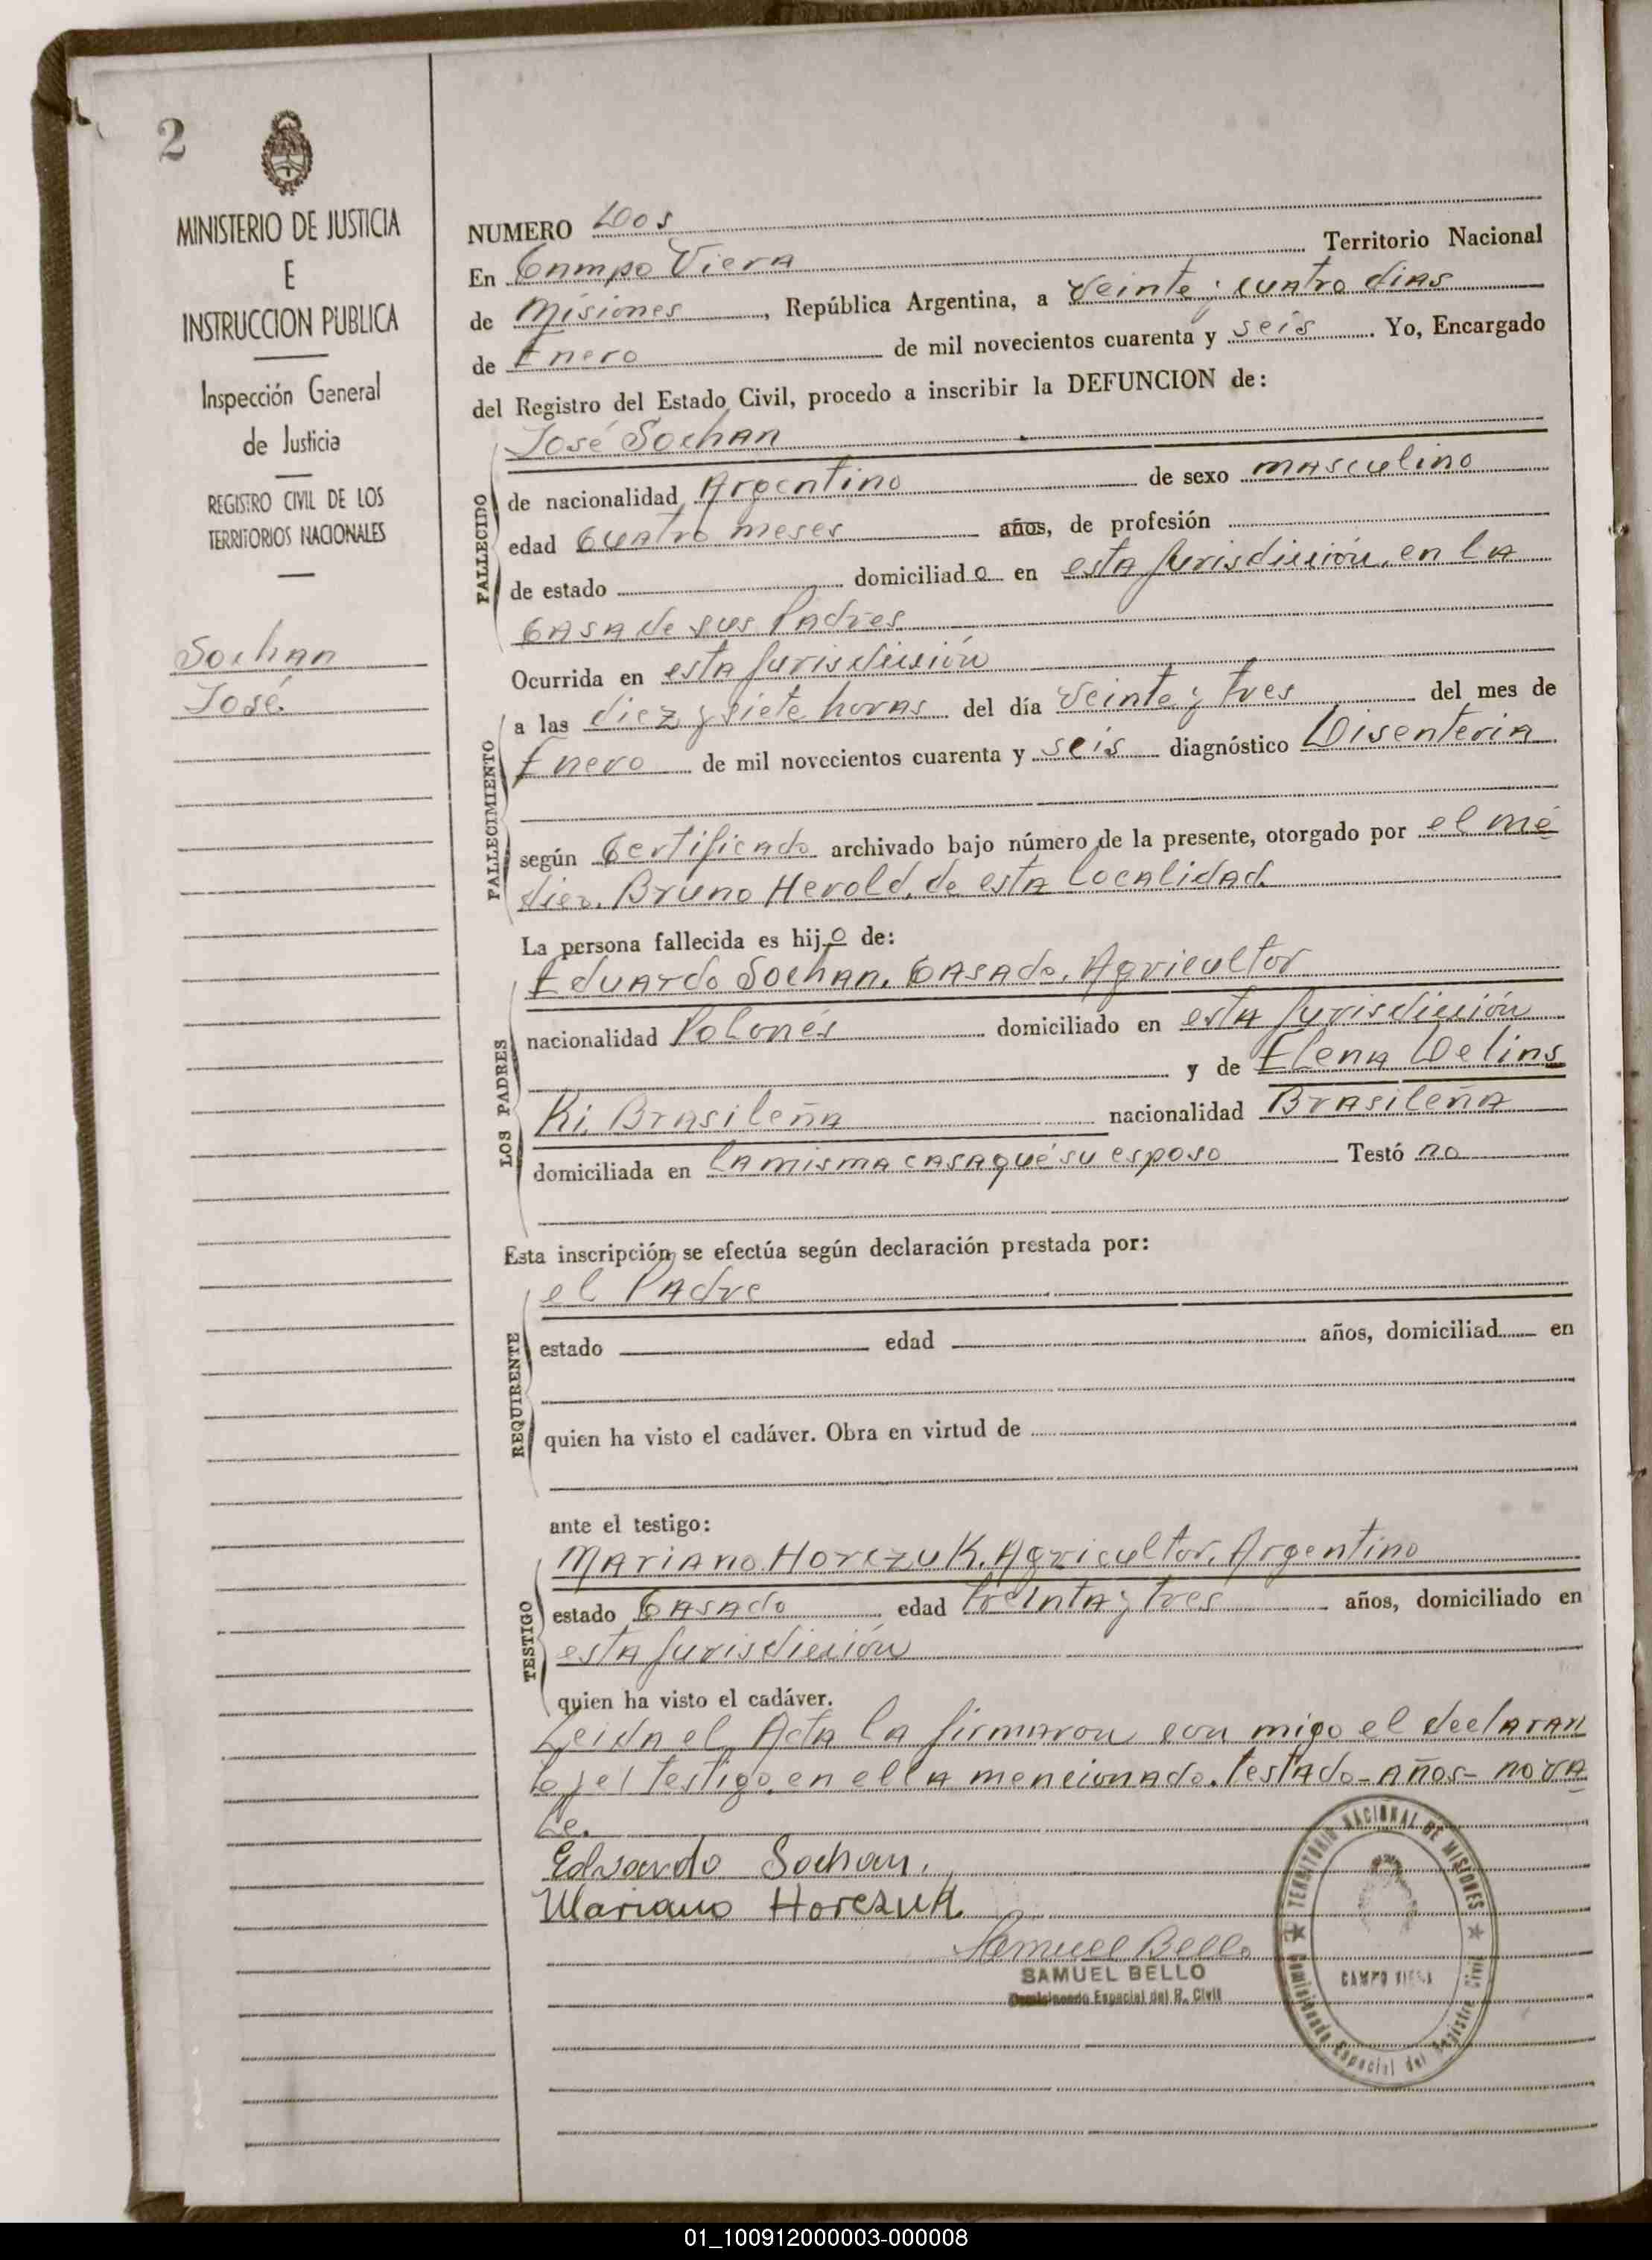 2
MINISTERIO DE JUSTICIA
E
INSTRUCCION PUBLICA
Inspección General
de Justicia
REGISTRO CIVIL DE LOS
TERRITORIOS NACIONALES
Sochan
José
NUMERO Dos
En Campo Viera Territorio Nacional
de Misiones, República Argentina, a Veinte y cuatro dias
de Enero de mil novecientos cuarenta y seis. Yo, Encargado
del Registro del Estado Civil, procedo a inscribir la DEFUNCION de:
FALLECIDO
José Sochan
de nacionalidad Argentino de sexo masculino
edad Cuatro meses años, de profesión
de estado domiciliado en esta Jurisdicción, en la
Casa de sus Padres
Ocurrida en esta Jurisdicción
FALLECIMIENTO
a las diez y siete horas del día Veinte y tres del mes de
Enero de mil novecientos cuarenta y seis diagnóstico Disenteria
según Certificado archivado bajo número de la presente, otorgado por el mé
dico, Bruno Herold, de esta localidad.
La persona fallecida es hijo de:
LOS PADRES
Eduardo Sochan, Casado, Agricultor
nacionalidad Polonés domiciliado en esta Jurisdicción
y de Elena Delins
Ki, Brasileña nacionalidad Brasileña
domiciliada en la misma casa qué su esposo Testó no
Esta inscripción se efectúa según declaración prestada por:
REQUIRENTE
el Padre
estado edad años, domiciliad en
quien ha visto el cadáver. Obra en virtud de
ante el testigo:
TESTIGO
Mariano Horczuk, Agricultor, Argentino
estado Casado edad treinta y tres años, domiciliado en
esta Jurisdicción
quien ha visto el cadáver.
Leida el Acta la firmaron con migo el declaran
te y el testigo en ella mencionado. testado-años-no va
le.
Edwardo Sochan.
Mariano Horczuk
Samuel Bello
SAMUEL BELLO
Comisionado Especial del R. Civil
TERRITORIO NACIONAL DE MISIONES
CAMPO VIERA
Comisionado Especial del Registro Civil
01_100912000003-000008